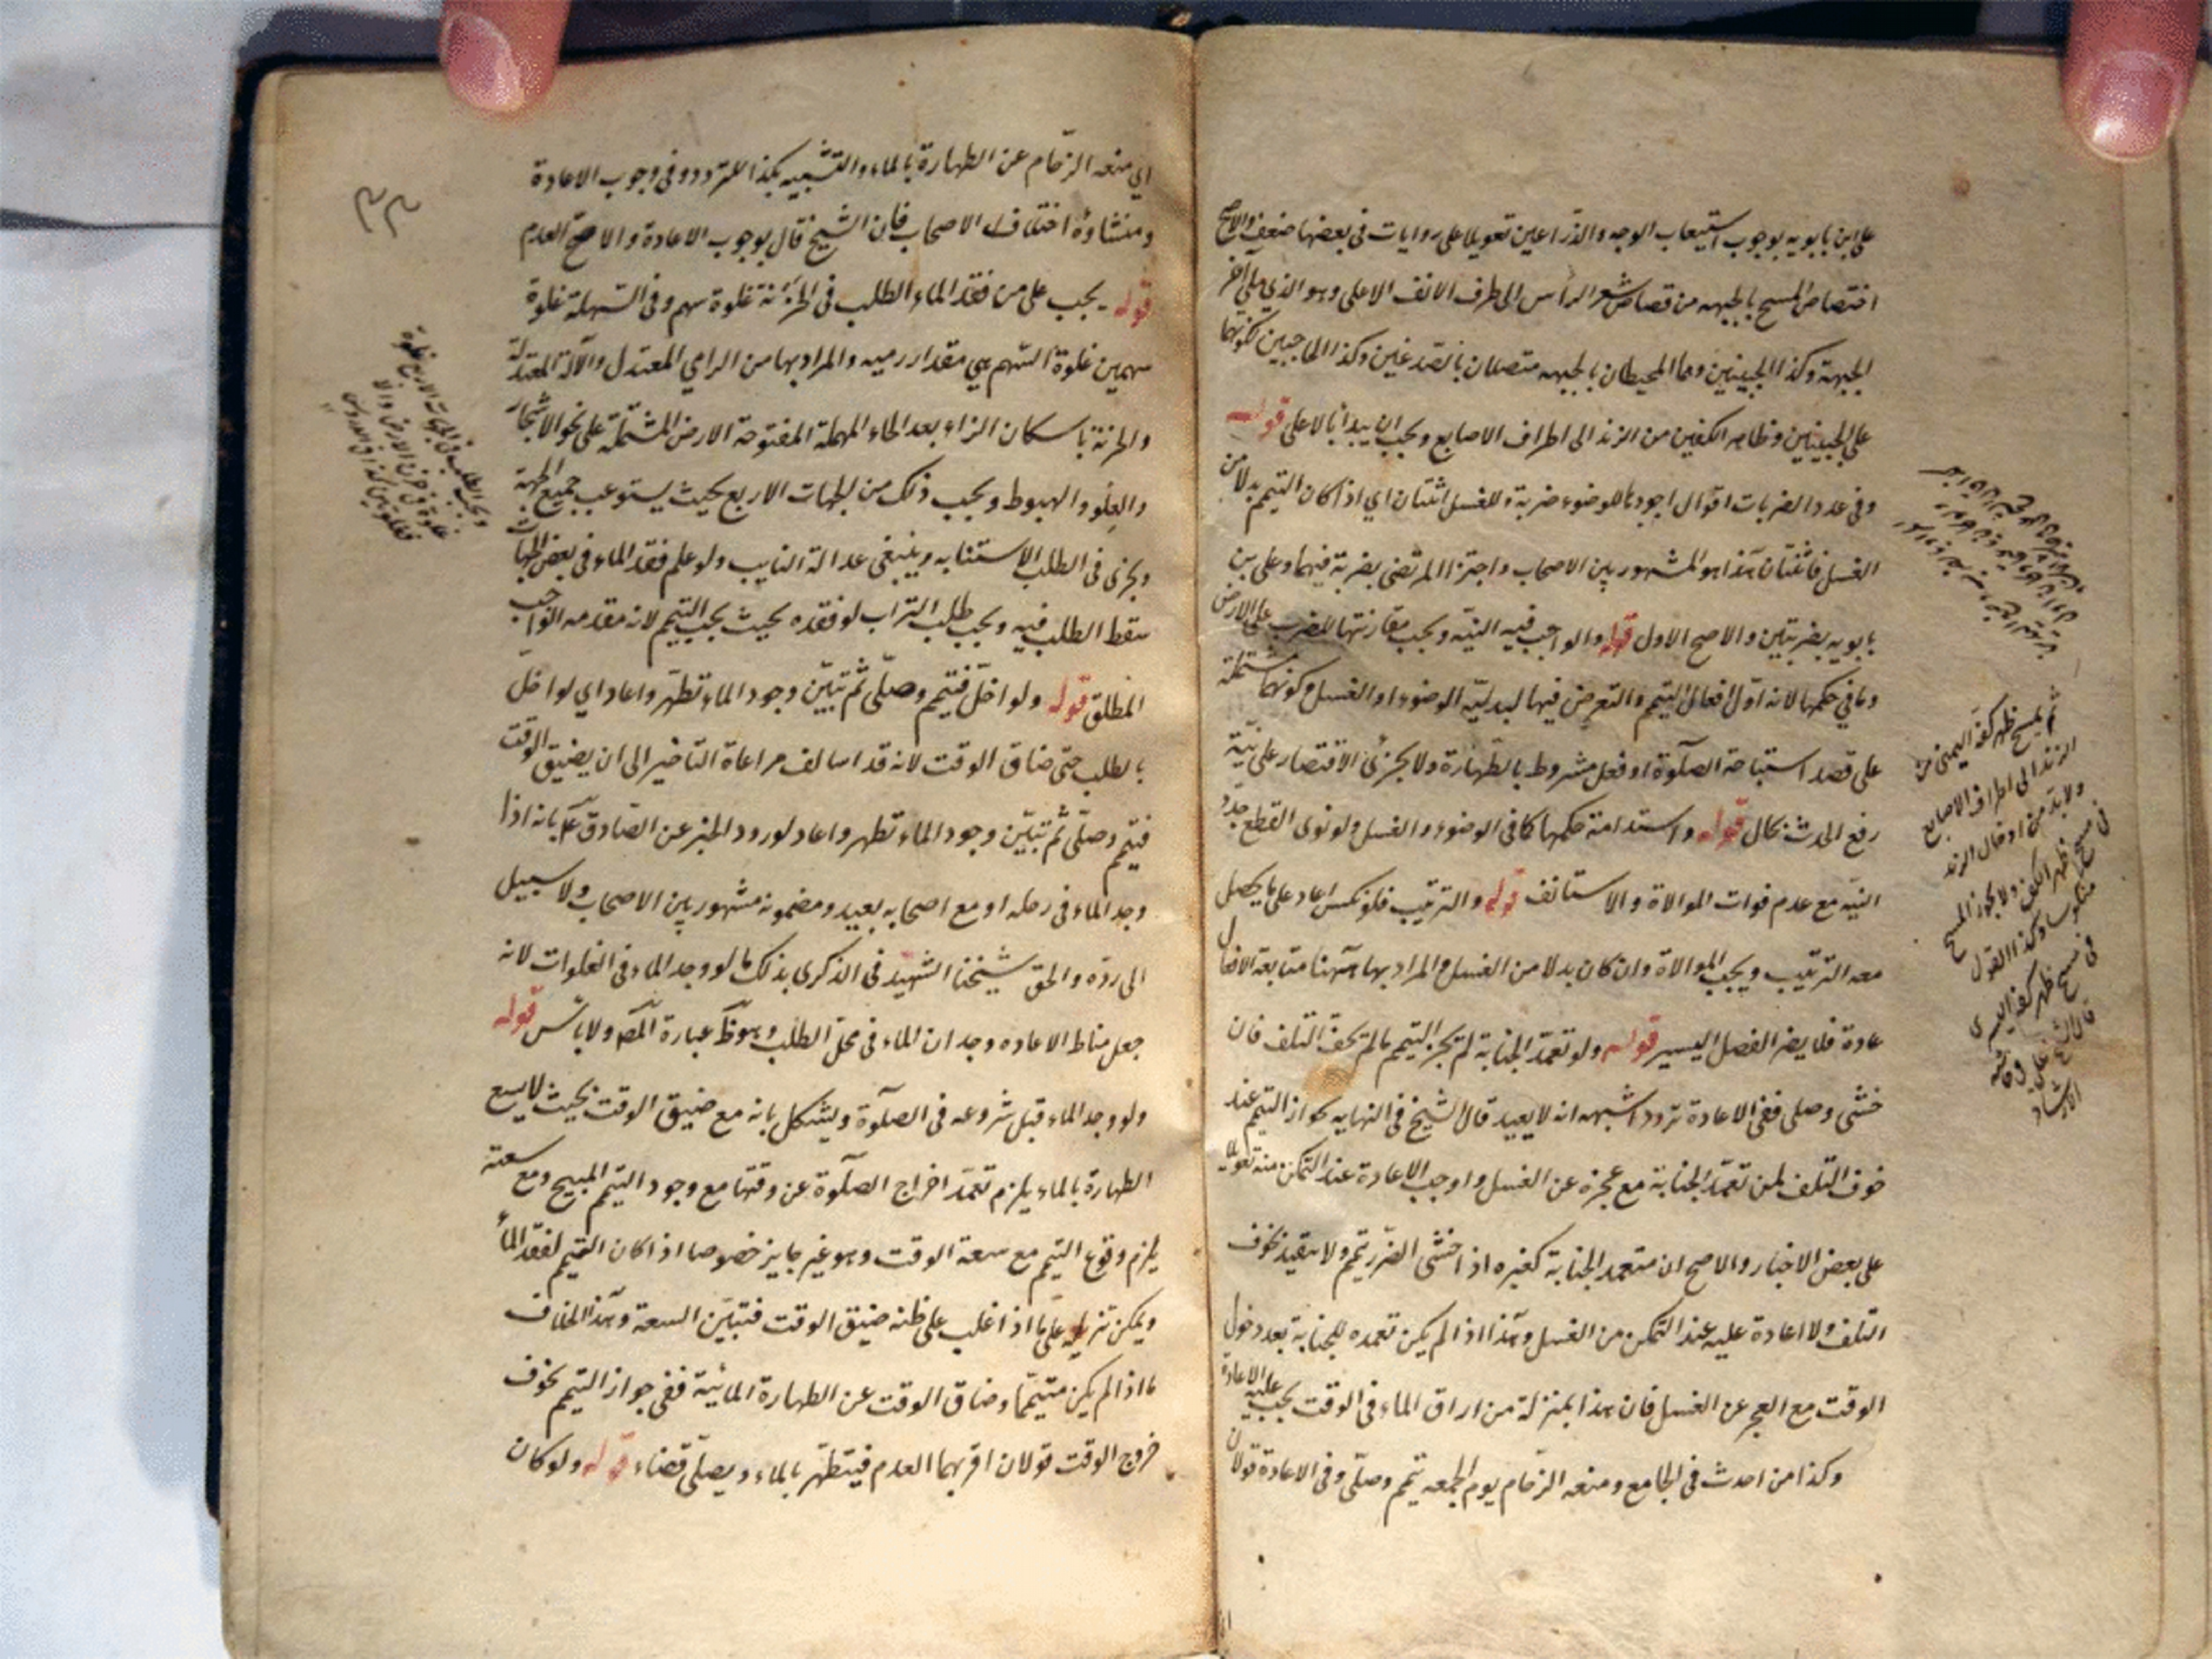 علي ابن بابويه بوجوب استيعاب الوجه والذراعين تعويلا على روايات في بعضها ضعف والاصح
اختصاص المسح بالجبهه من قصاص شعر الرأس الى طرف الانف الاعلى وهو الذي يلي اخر
الجبهة وكذا الجبينين وهما المحيطان بالجبهه متصلان بالصدغين وكذا الحاجبين لكونهما
على الجبينين وظاهر الكفين من الزند الى اطراف الاصابع ويجب ان يبدأ بالاعلى قوله
وفي عدد الضربات اقوال اجودها للوضوء ضربة وللغسل اثنتان اي اذا كان التيمم بدلا من
الغسل فاثنتان هذا هو المشهور بين الاصحاب واجتزا المرتضى بضربة فيهما وعلي بن
بابويه بضربتين والاصح الاول قوله والواجب فيه النيه ويجب مقارنتها للضرب على الارض
وما في حكمها لانه اول افعال التيمم والتعرض فيها لبدليّة الوضوء او الغسل وكونها مشتملة
على قصد استباحة الصلوة او فعل مشروط بالطهارة ولا يجزئ الاقتصار على نيّة
رفع الحدث بحال قوله واستدامة حكمها كما في الوضوء والغسل ولو نوى القطع جدّد
النيّه مع عدم فوات الموالاة والا استانف قوله والترتيب فلو نكس اعاد على ما يحصل
معه الترتيب ويجب الموالاة وان كان بدلا من الغسل والمراد بها هنا متابعة الافعال
عادة فلا يضر الفصل اليسير قوله ولو تعمّد الجنابة لم يجز التيمم ما لم يخف التلف فان
خشى وصلى ففي الاعادة تردد اشبهه انه لا يعيد قال الشيخ في النهايه بجواز التيمم عند
خوف التلف لمن تعمّد الجنابة مع عجزه عن الغسل واوجب الاعادة عند التمكن منه تعويلا
على بعض الاخبار والاصح ان متعمد الجنابة كغيره اذا خشى الضرر تيمم ولا يتقيد بخوف
التلف ولا اعادة عليه عند التمكن من الغسل وهذا اذا لم يكن تعمده للجنابة بعد دخول
الوقت مع العجز عن الغسل فان هذا بمنزلة من اراق الماء في الوقت يجب عليه الاعادة
وكذا من احدث في الجامع ومنعه الزحام يوم الجمعه تيمم وصلّى وفي الاعادة قولان
ثم يمسح ظهر كفه اليمنى من
الزند الى اطراف الاصابع
ولا بد من ادخال الزند
في مسح ظهر الكف ولا يجوز المسح
منكوسا وكذا القول
في مسح ظهر كفه اليسرى
قال الشيخ علي في حاشيه
الارشاد
اي منعه الزحام عن الطهارة بالماء والتشبيه بهذا للتردد وفي وجوب الاعادة
ومنشاؤه اختلاف الاصحاب فان الشيخ قال بوجوب الاعادة والاصح العدم
قوله يجب على من فقد الماء الطلب في الحزنة غلوة سهم وفي السهلة غلوة
سهمين غلوة السهم هي مقدار رميه والمراد بها من الرامي المعتدل والآلة المعتدلة
والحزنة باسكان الزاء بعد الحاء المهملة المفتوحة الارض المشتملة على نحو الاشجار
والعلو والهبوط ويجب ذلك من الجهات الاربع بحيث يستوعب جميع الجهة
ويجزى في الطلب الاستنابه وينبغي عدالة النايب ولو علم فقد الماء في بعض الجهات
سقط الطلب فيه ويجب طلب التراب لو فقده بحيث يجب التيمم لانه مقدمه الواجب
المطلق قوله ولو اخل فتيمم وصلّى ثم تبيّن وجود الماء تطهّر واعاد اي لو اخل
بالطلب حتى ضاق الوقت لانه قد اسالف مراعاة التاخير الى ان يضيق الوقت
فتيمم وصلّى ثم تبيّن وجود الماء تطهر واعاد لورود الخبر عن الصّادق ع بانه اذا
وجد الماء في رحله او مع اصحابه يعيد ومضمونه مشهور بين الاصحاب ولا سبيل
الى ردّه والحق شيخنا الشهيد في الذكرى بذلك ما لو وجد الماء في الغلوات لانه
جعل مناط الاعاده وجدان الماء في محل الطلب وهو ظ عبارة المص ولا باس قوله
ولو وجد الماء قبل شروعه في الصلوة ويشكل بانه مع ضيق الوقت بحيث لا يسع
الطهارة بالماء يلزم تعمّد اخراج الصلوة عن وقتها مع وجود التيمم المبيح ومع سعته
يلزم وقوع التيمم مع سعة الوقت وهو غير جايز خصوصا اذا كان التيمم لفقد الماء
ويمكن تنزيله على ما اذا غلب على ظنه ضيق الوقت فتبيّن السعة وهذا بخلاف
ما اذا لم يكن متيمما وضاق الوقت عن الطهارة المائية ففي جواز التيمم بخوف
خروج الوقت قولان اقربهما العدم فيتطهّر بالماء ويصلّي قضاء قوله ولو كان
ويجب الطلب في الجهات الاربع غلوة
غلوة في حزن الارض والا
فغلوتين كذا في الدروس